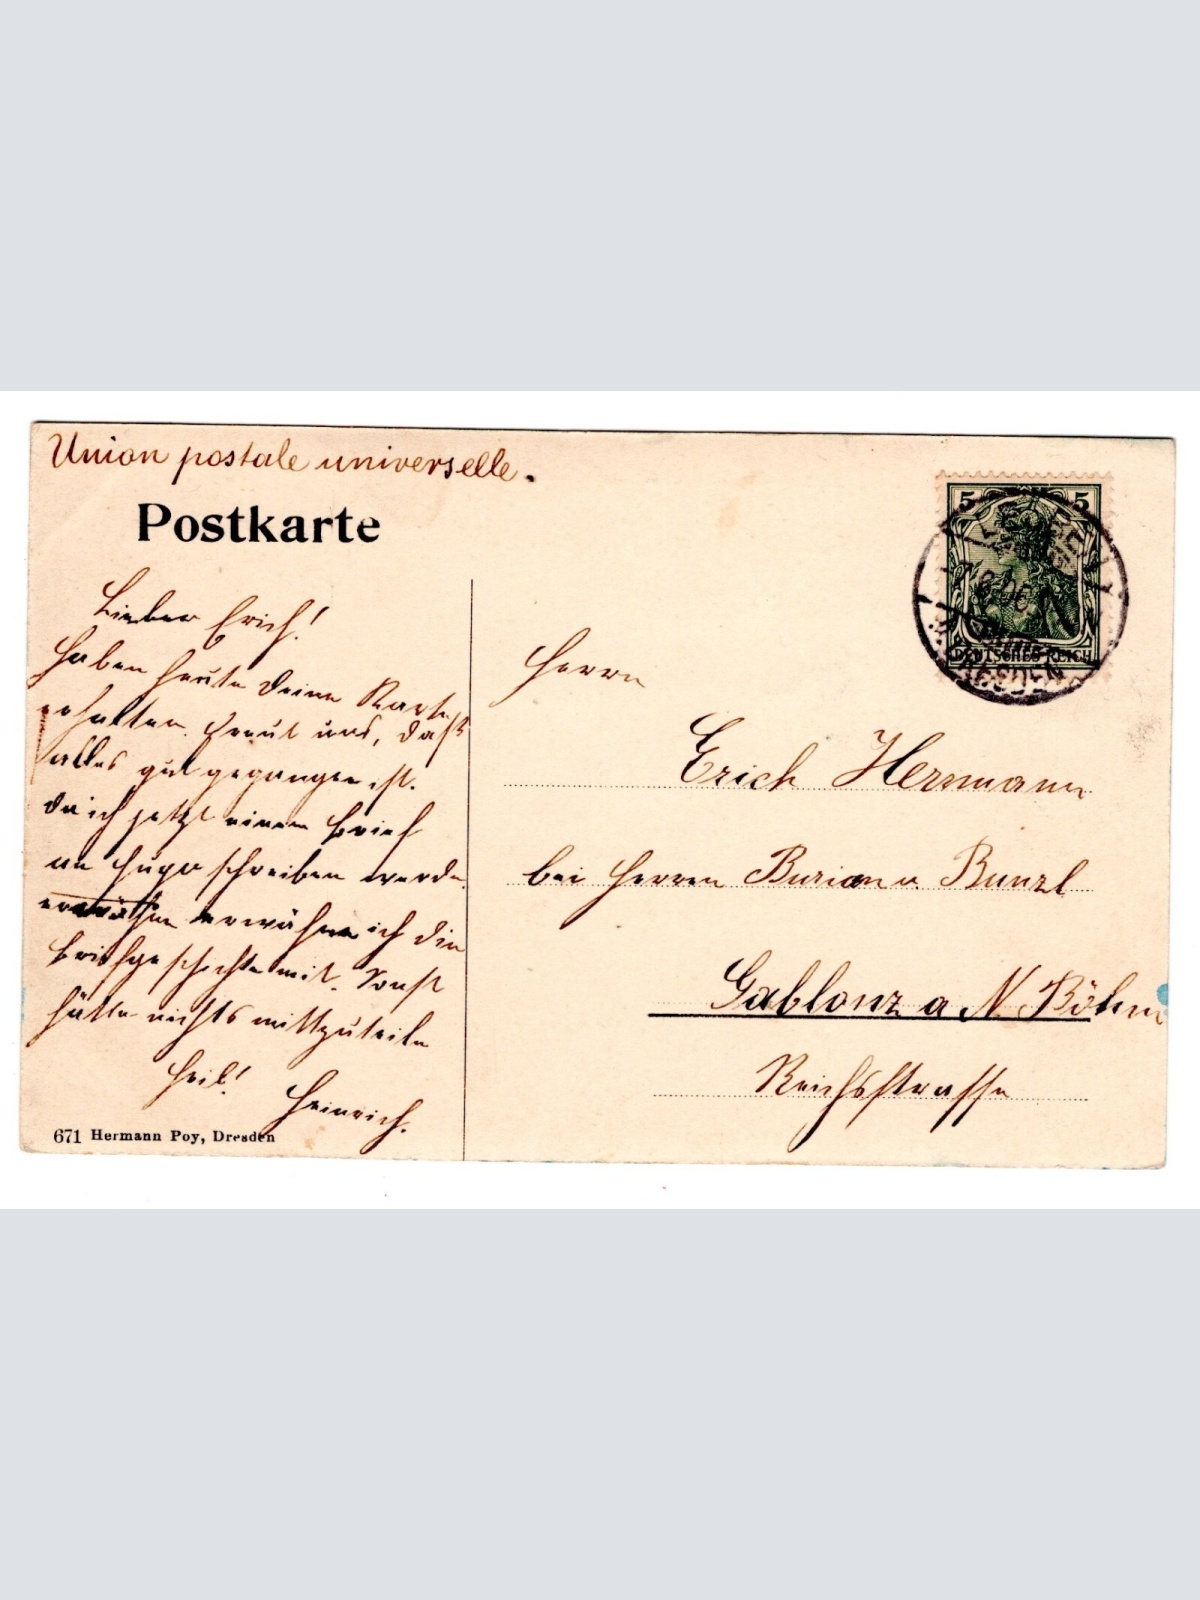 Union postale universelle.
Postkarte
Lieber Erich!
Haben heute deine Karte
erhalten. Freut uns, daß
alles gut gegangen ist.
Da ich jetzt einen Brief
an Hugo schreiben werde
erwähne erwähne ich die
Briefgeschichte mit. Sonst
hätte nichts mittzuteile
Heil!
Heinrich.
671 Hermann Poy, Dresden
5 5
DEUTSCHES REICH
Herrn
Erich Herrmann
bei Herren Burian u. Bunzl
Gablonz a N. Böhm
Reichsstrasse